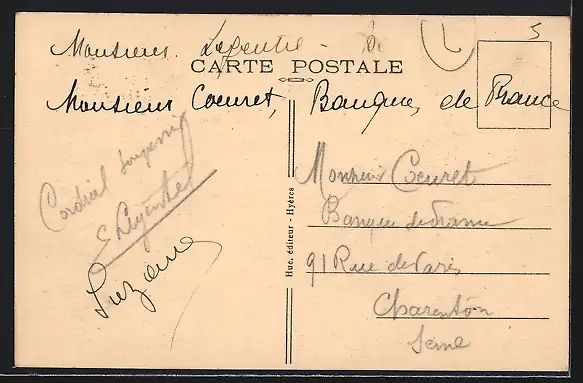 Monsieur Legentil
5
L
CARTE POSTALE
Monsieur Coeuret, Banque de France
Cordial
E Legentil
Suzanne
Huc, éditeur - Hyères
Monsieur Coeuret
Banque de France
91 Rue de Paris
Charenton
Seine